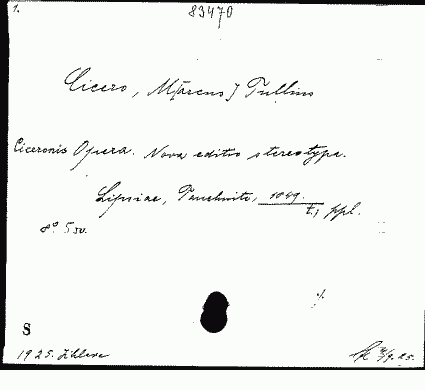 1.
83470
Cicero, M[arcus] Tullius
Ciceronis Opera. Nova editio stereotypa.
Lipsiae, Tauchnitz, 1849.
t., ppl.
8° 5 sv.
S
1925.